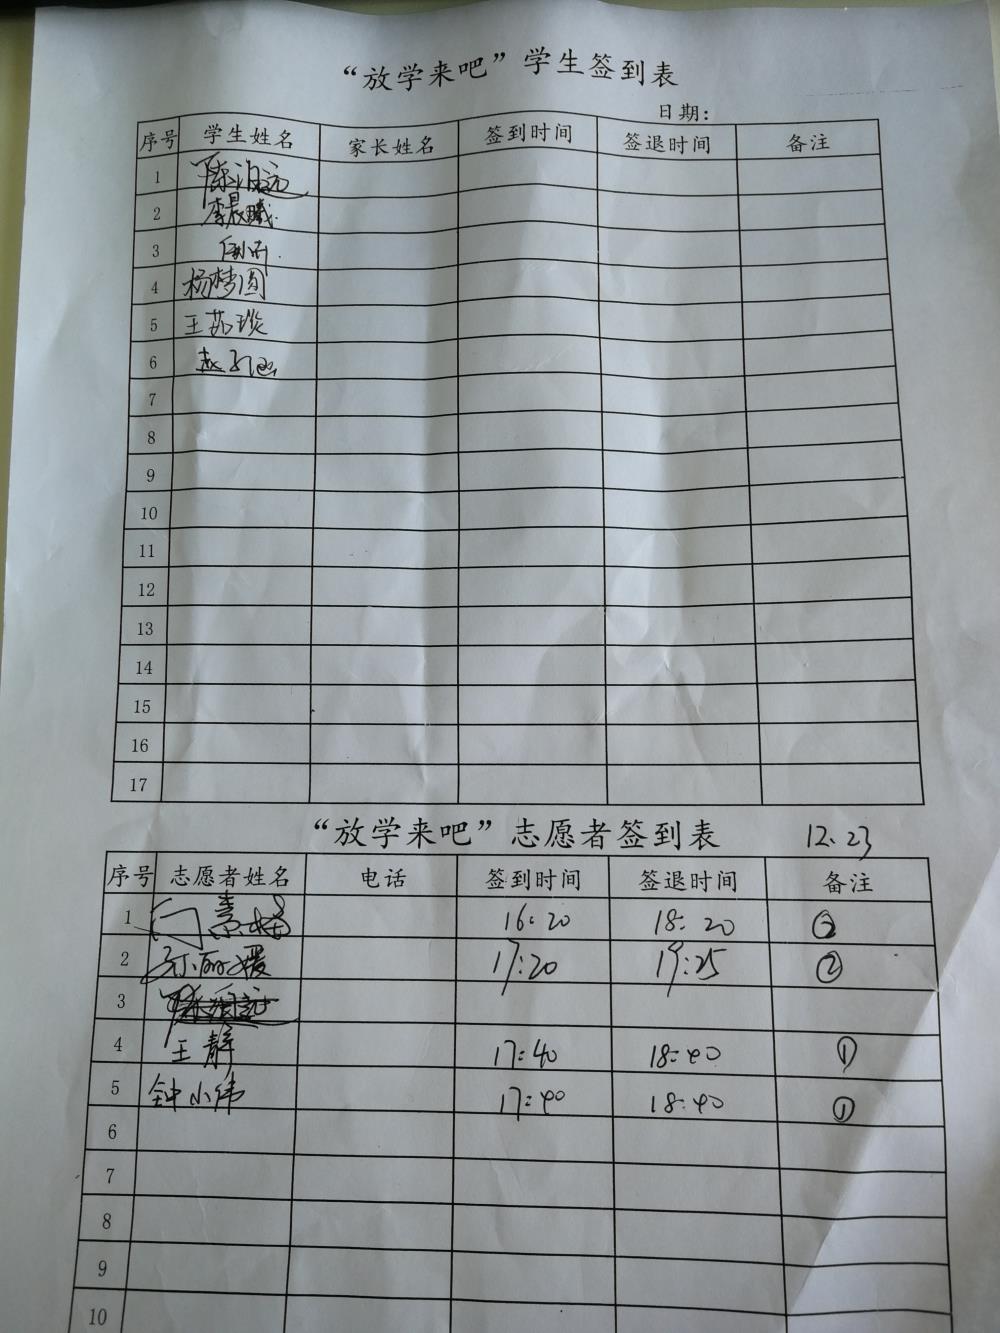 “放学来吧”学生签到表
日期：
序号 学生姓名 家长姓名 签到时间 签退时间 备注
1
2 李晨曦
3
4 杨梦圆
5 王茹琰
6 赵子涵
7
8
9
10
11
12
13
14
15
16
17
“放学来吧”志愿者签到表 12.23
序号 志愿者姓名 电话 签到时间 签退时间 备注
1 16:20 18:20 ②
2 17:20 19:25 ②
3
4 王静 17:40 18:40 ①
5 钟小伟 17:40 18:40 ①
6
7
8
9
10